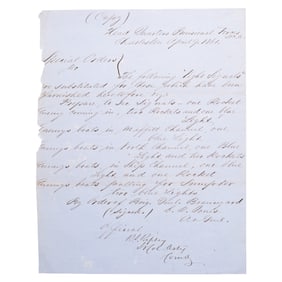 (Copy)
Head Quarters Provisional Army
Charleston April 9, 1861
Special Orders
No
The following "Light Signals"
are substituted for those which have been
furnished heretofore viz:
Prepare, to See Signals - one Rocket
Enemy coming in, two Rockets and one blue
Light
Enemys boats, in Maffitt Channel, one
blue Light
Enemys boats in North Channel, one Blue
Light and two Rockets
Enemys boats, in Ship Channel, one Blue
Light and one Rocket
Enemys boats pulling for Sumpter
two Blue Lights
By Order of Brig. Genl. Beauregard
(Signed)
Official